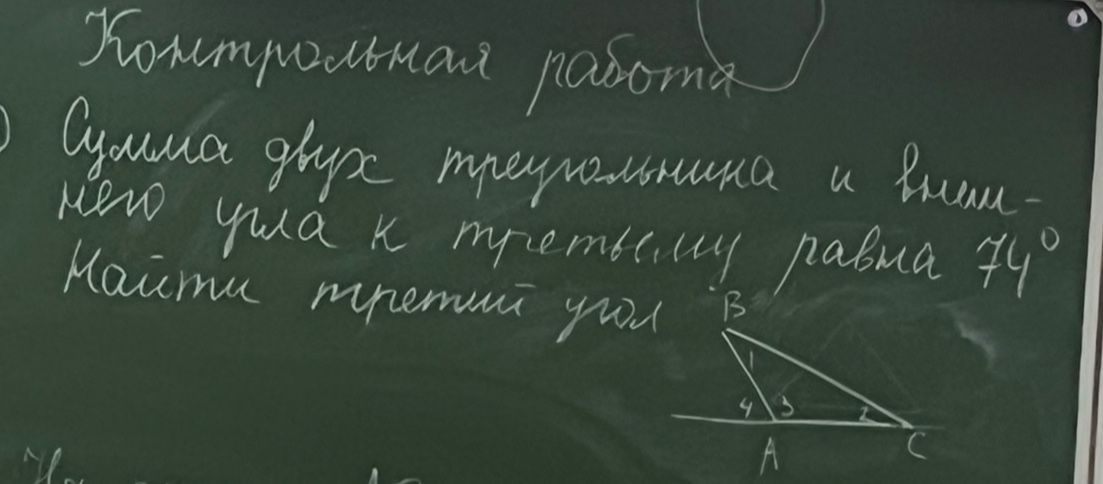 Контрольная работа
) Сумма двух треугольника и внеш-
него угла к третьему равна 74°
Найти третий угол
B
1
4 3 2
A C